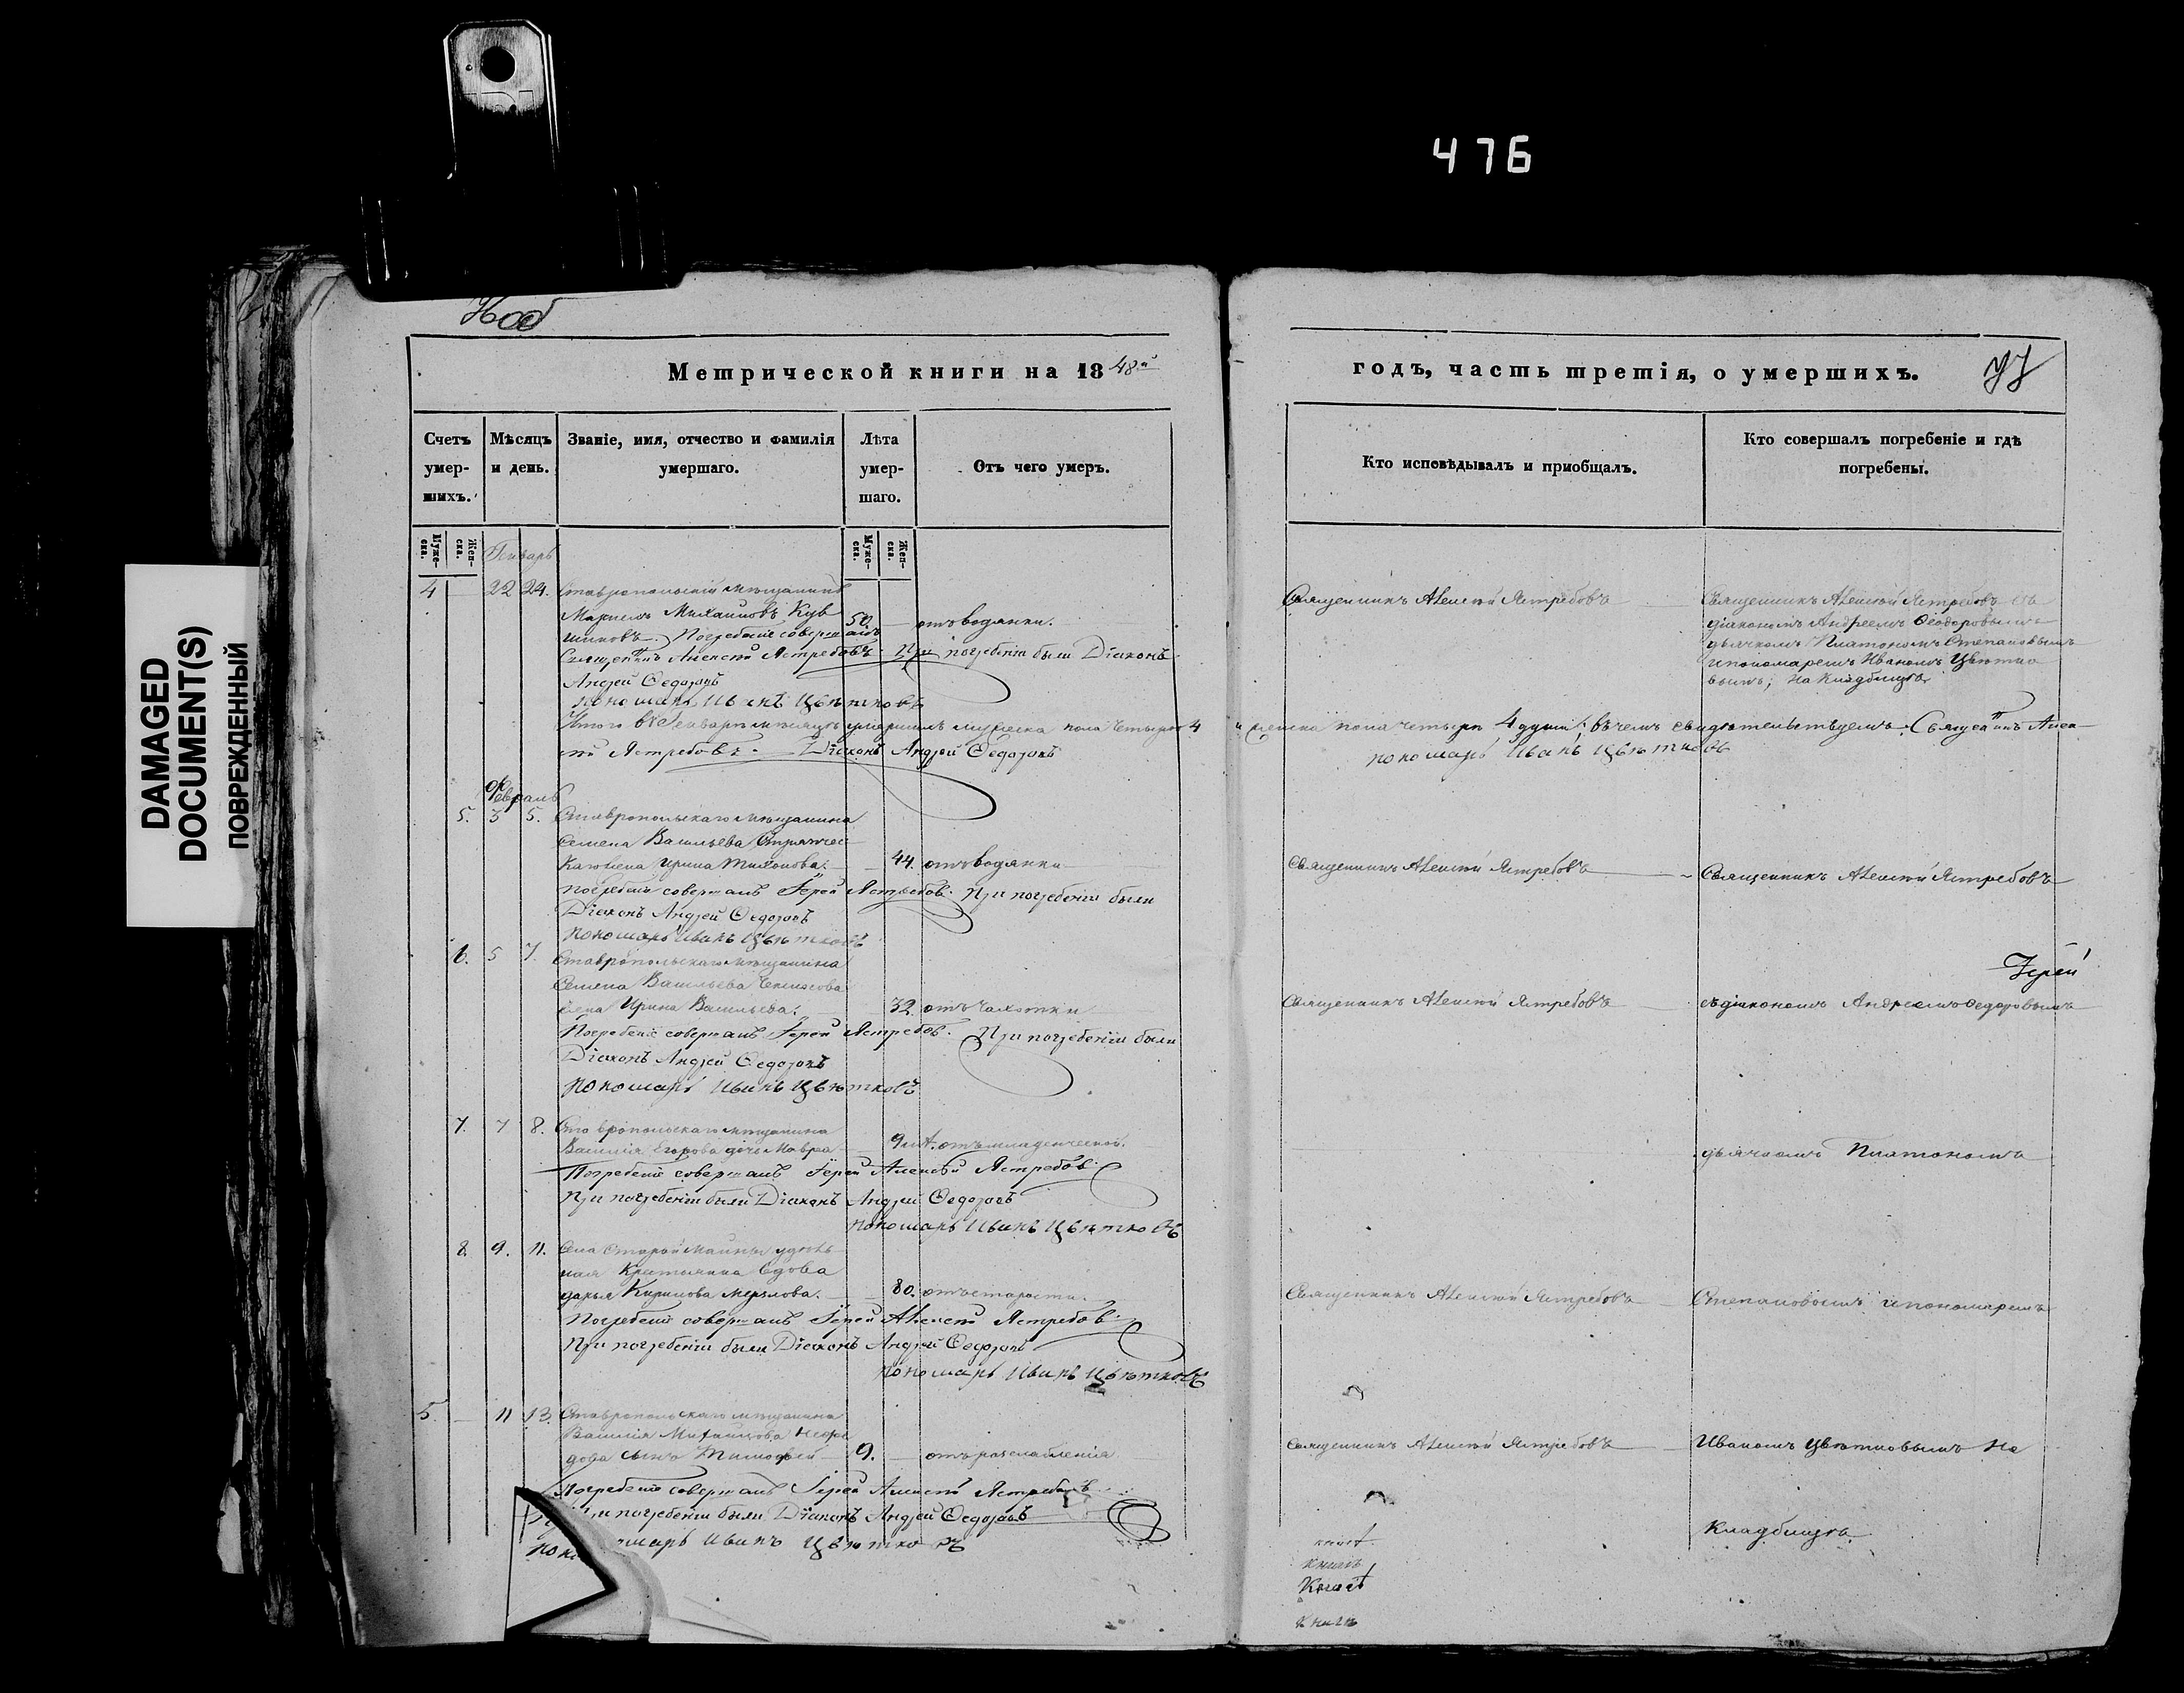 476
DAMAGED
DOCUMENT(S)
ПОВРЕЖДЕННЫЙ
Метрической книги на 1848й
годъ, часть третія, о умершихъ.
Счетъ умер-шихъ.
Мѣсяцъ и день.
Званіе, имя, отчество и фамилія умершаго.
Лѣта умер-шаго.
Отъ чего умеръ.
Кто исповѣдывалъ и приобщалъ.
Кто совершалъ погребеніе и гдѣ погребены.
Муже-ска.
Жен-ска.
Генварь
Муже-ска.
Жен-ска.
4 — 22 24. Ставропольскій мѣщанинъ
Михаиловъ Кув
шиновъ. Погребеніе совершалъ 50. — отъ водянки.
Священникъ Алексѣй Ястребовъ. При погребеніи были Діаконъ
Андрей Ѳедоровъ
пономарь Иванъ Цвѣтковъ
Священникъ Алексѣй Ястребовъ
Священникъ Алексѣй Ястребовъ съ
діакономъ Андреемъ Ѳеодоровымъ
дьячкомъ Платономъ Степановымъ
и пономаремъ Иваномъ Цвѣтко
вымъ; на кладбищѣ
Итого въ Генварѣ мѣсяцѣ умершихъ мужеска пола четыре 4 и женска пола четыре 4 души; въ чемъ свидѣтельствуемъ. Священникъ Алек
сѣй Ястребовъ. Діаконъ Андрей Ѳедоровъ
пономарь Иванъ Цвѣтковъ
Февраль
5. 3 5. Ставропольскаго мѣщанина
Семена Васильева
жена Ирина Тихонова. — 44. отъ водянки
Погребеніе совершалъ Іерей Ястребовъ. При погребеніи были
Діаконъ Андрей Ѳедоровъ
пономарь Иванъ Цвѣтковъ
Священникъ Алексѣй Ястребовъ
Священникъ Алексѣй Ястребовъ
6. 5 7. Ставропольскаго мѣщанина
Семена Васильева
жена Ирина Васильева. 32. отъ чахотки
Погребеніе совершалъ Іерей Ястребовъ. При погребеніи были
Діаконъ Андрей Ѳедоровъ
пономарь Иванъ Цвѣтковъ
Іерей
Священникъ Алексѣй Ястребовъ
съ діакономъ Андреемъ Ѳедоровымъ
7. 7 8. Ставропольскаго мѣщанина
Василія Егорова дочь Мавра 9 отъ младенческой.
Погребеніе совершалъ Іерей Алексѣй Ястребовъ.
При погребеніи были Діаконъ Андрей Ѳедоровъ
пономарь Иванъ Цвѣтковъ
дьячкомъ Платономъ
8. 9. 11. Села Старой Майны удѣль
ная Крестьянка вдова
Дарья Кирилова 80. отъ старости.
Погребеніе совершалъ Іерей Алексѣй Ястребовъ.
При погребеніи были Діаконъ Андрей Ѳедоровъ
пономарь Иванъ Цвѣтковъ
Священникъ Алексѣй Ястребовъ
Степановымъ и пономаремъ
5. — 11 13. Ставропольскаго мѣщанина
Василія Михаилова
сынъ Тимофей 9. — отъ разслабленія
Погребеніе совершалъ Іерей Алексѣй Ястребовъ
При погребеніи были Діаконъ Андрей Ѳедоровъ
пономарь Иванъ Цвѣтковъ
Священникъ Алексѣй Ястребовъ
Иваномъ Цвѣтковымъ на
кладбищѣ.
книгѣ